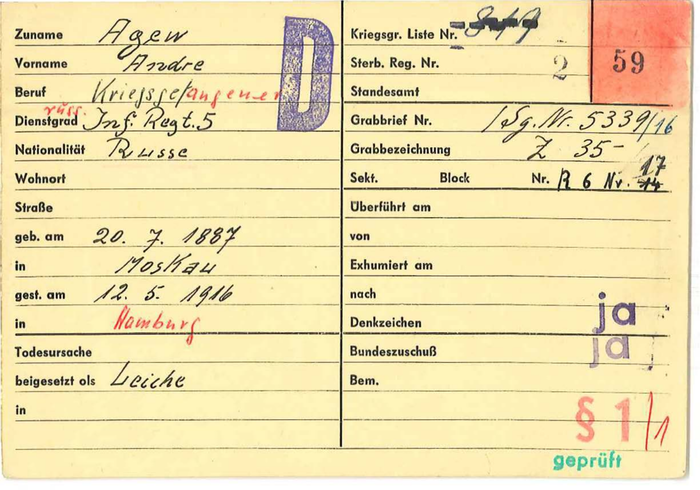 Zuname Agew
Vorname Andre
Beruf Kriegsgefangener
russ.
Dienstgrad Inf. Regt. 5
Nationalität Russe
Wohnort
Straße
geb. am 20. 7. 1887
in Moskau
gest. am 12. 5. 1916
in Hamburg
Todesursache
beigesetzt als Leiche
in
D
Kriegsgr. Liste Nr. 849
Sterb. Reg. Nr. 2 59
Standesamt
Grabbrief Nr. / Sg. Nr. 5339/16
Grabbezeichnung Z 35-
17
Sekt. Block Nr. R 6 Nr. 14
Überführt am
von
Exhumiert am
nach
Denkzeichen ja
Bundeszuschuß ja
Bem.
§ 1/1
geprüft